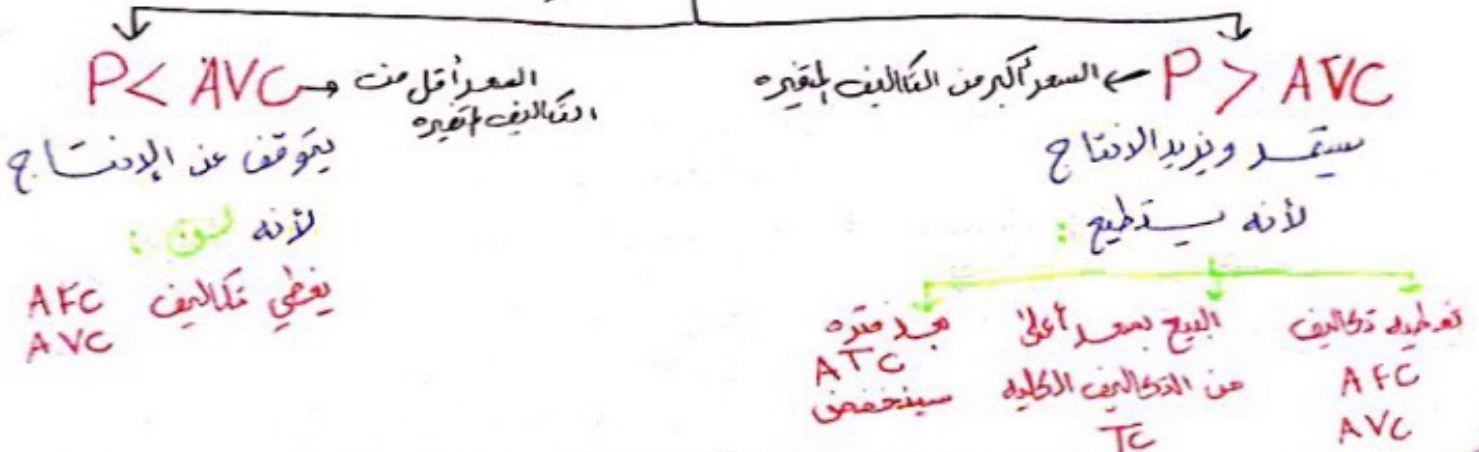 P > AVC ← السعر أكبر من التكاليف المتغيره
سيتمـر ويزيد الانتاج
لأنه يستطيع :
تغطيه تكاليف
AFC
AVC
البيع بسعر أعلى
من التكاليف الكليه
TC
بعد فتره
ATC
سينخفض
P < AVC → السعر أقل من
التكاليف المتغيره
يتوقف عن الإنتاج
لأنه لن :
يغطي تكاليف AFC
AVC